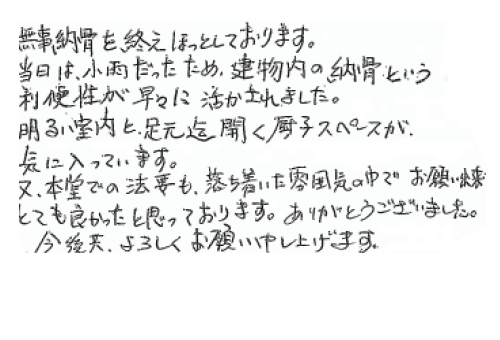 無事納骨を終えほっとしております。
当日は、小雨だったため、建物内の納骨という
利便性が早々に活かされました。
明るい室内と、足元迄開く厨子スペースが、
気に入っています。
又、本堂での法要も、落ち着いた雰囲気の中でお願い出来
とても良かったと思っております。ありがとうございました。
今後共、よろしくお願い申し上げます。